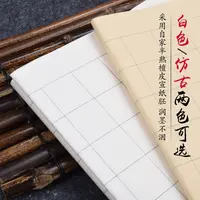 白色/仿古两色可选
采用自家半熟檀皮宣纸胚 润墨不洇